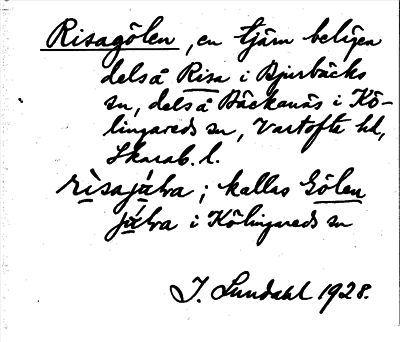 Risagölen, en tjärn belägen
dels å Risa i Bjurbäcks
sn, dels å Bäckanäs i Kö-
lingareds sn, Vartofta hd,
Skarab. l.
kallas Gölen
i Kölingareds sn
I. Lundahl 1928.